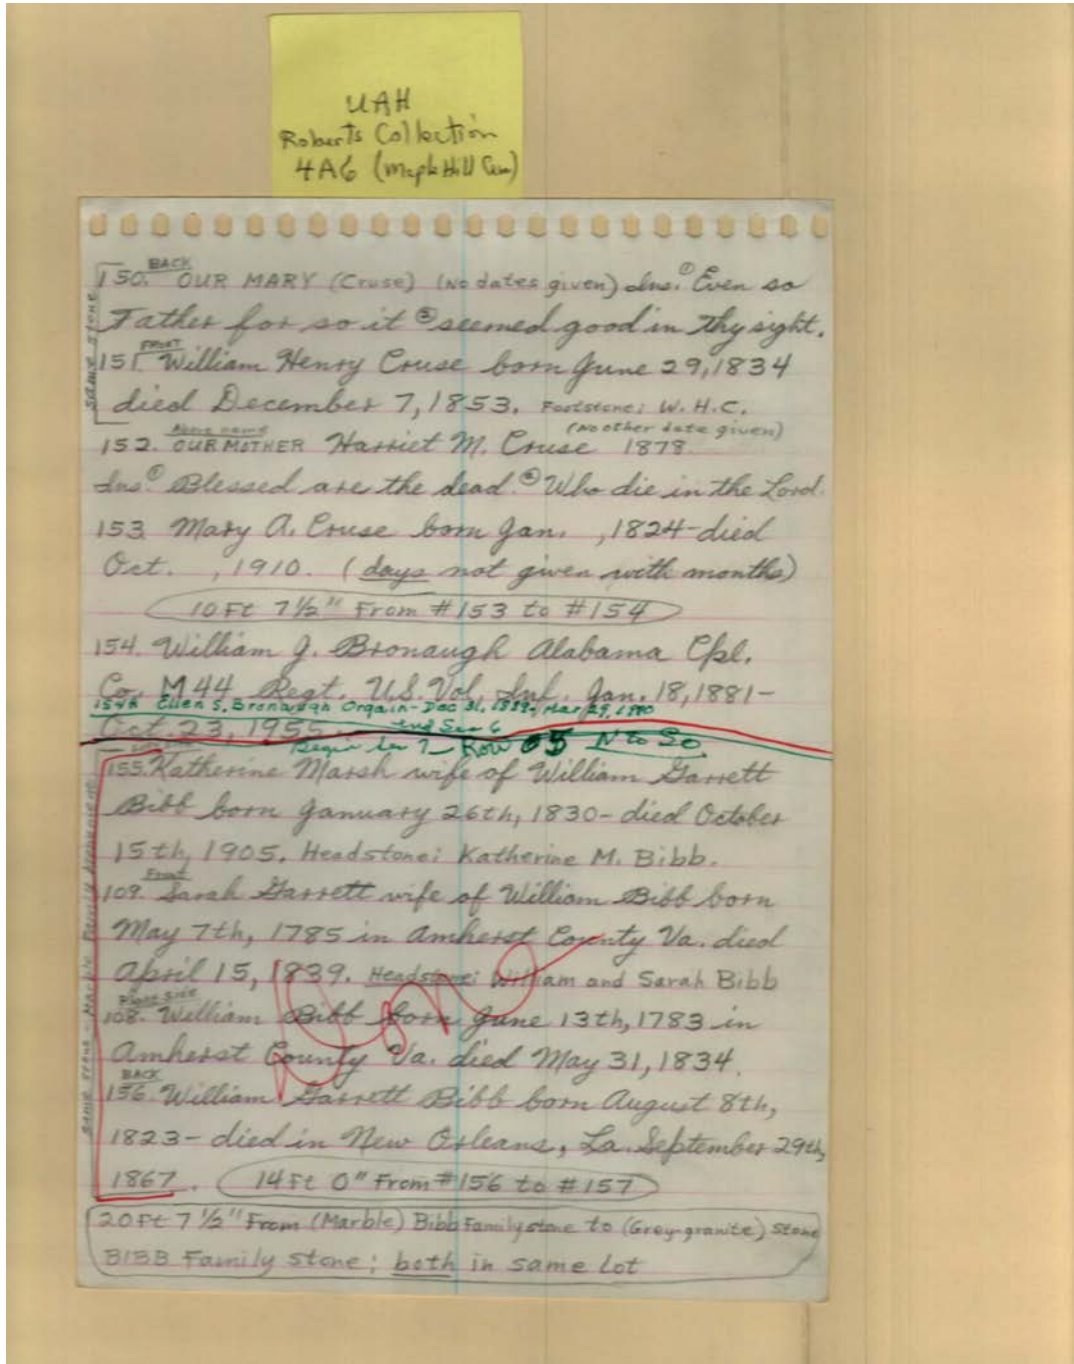 UAH
Roberts Collection
4A6 (Maple Hill Cem)
BACK
150. OUR MARY (Cruse) (No dates given) Ins. ① Even so
Father for so it ② seemed good in Thy sight.
SAME STONE
FRONT
151. William Henry Cruse born June 29, 1834
died December 7, 1853. Footstone: W.H.C.
Above name
(No other date given)
152. OUR MOTHER Harriet M. Cruse 1878.
Ins. ① Blessed are the dead. ② Who die in the Lord.
153. Mary A. Cruse born Jan. , 1824 - died
Oct. , 1910. (days not given with months)
10 Ft 7 1/2" From #153 to #154
154. William J. Bronaugh Alabama Cpl.
Co. M 44 Regt. U.S. Vol. Inf. Jan. 18, 1881 -
154A Ellen S. Bronaugh Orgain - Dec 31, 1889 - Mar 29, 1980
Oct. 23, 1955 end Sec 6
Begin Sec 7 - Row 05 N to So.
155. Katherine Marsh wife of William Garrett
Bibb born January 26th, 1830 - died October
15th, 1905. Headstone: Katherine M. Bibb.
Front
109. Sarah Garrett wife of William Bibb born
May 7th, 1785 in Amherst County Va. died
April 15, 1839. Headstone: William and Sarah Bibb
Right side
108. William Bibb born June 13th, 1783 in
Amherst County Va. died May 31, 1834.
BACK
156. William Garrett Bibb born August 8th,
1823 - died in New Orleans, La. September 29th,
1867. 14 Ft 0" From #156 to #157
Same stone - Marble Family
20 Ft 7 1/2" From (Marble) Bibb Family stone to (Grey-granite) Stone
BIBB Family stone; both in same Lot